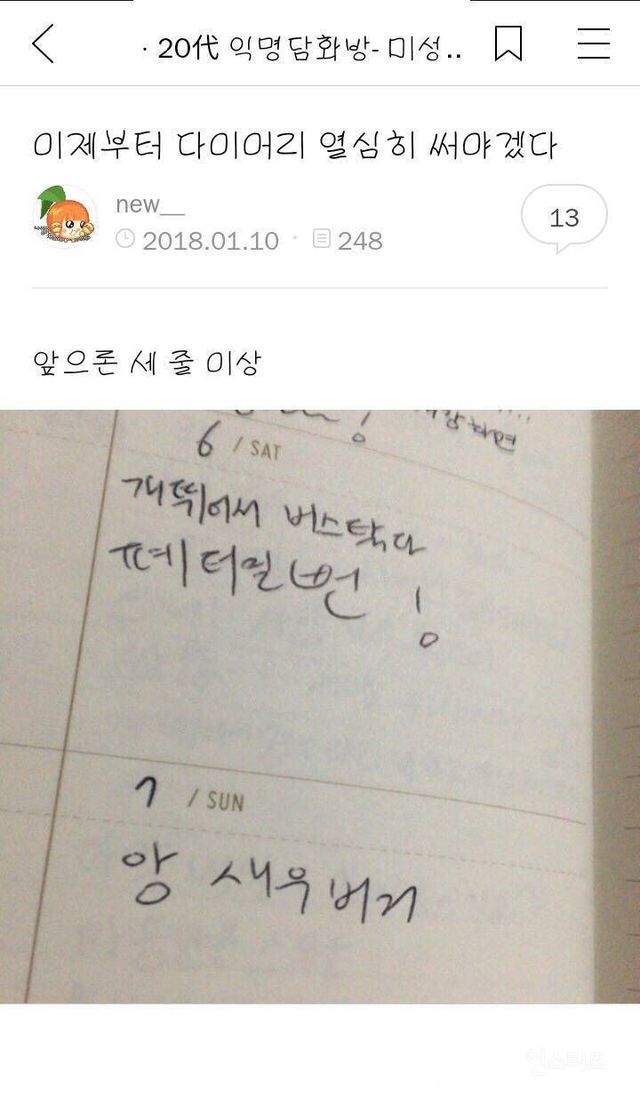 · 20代 익명담화방- 미성..
이제부터 다이어리 열심히 써야겠다
new__
2018.01.10 · 248
13
앞으론 세 줄 이상
6 / SAT
개뛰어서 버스탁다
7 / SUN
앙 새우버거
인스티즈